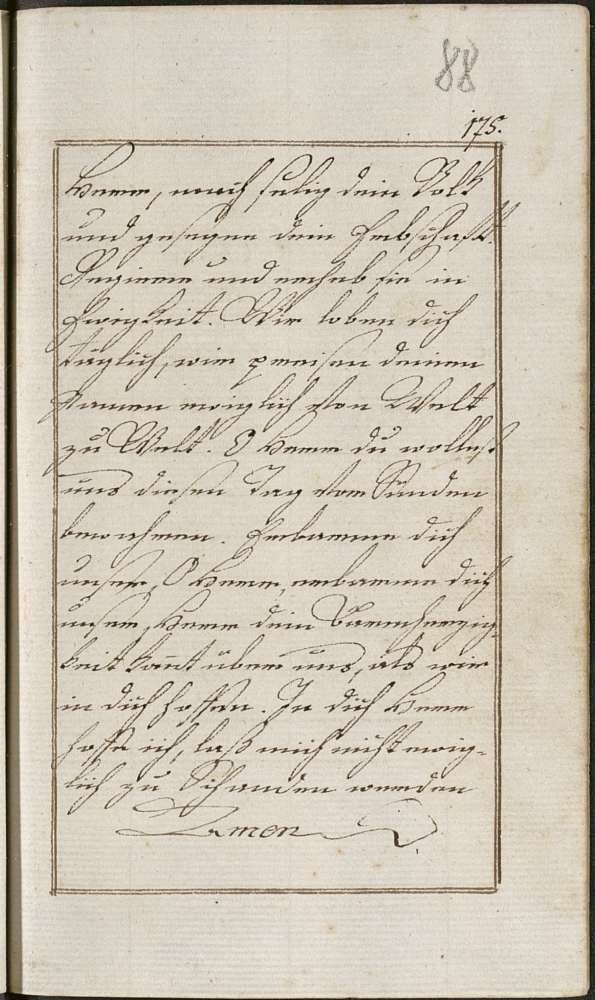 88
175.
Herr, mach selig dein Volk
und gesegne dein Erbschafft.
Regiere und erheb sie in
Ewigkeit. Wir loben dich
täglich, wir preisen deinen
Namen ewiglich von Welt
zu Welt. O Herr du wollest
uns diesen Tag von Sünden
bewahren. Erbarme dich
unser, O Herr, erbarme dich
unser, Herr dein Barmherzig-
keit kom̄t über uns, als wir
in dich hoffen. In dich Herr
hoffe ich, laß mich nicht ewig-
lich zu Schanden werden
Amen